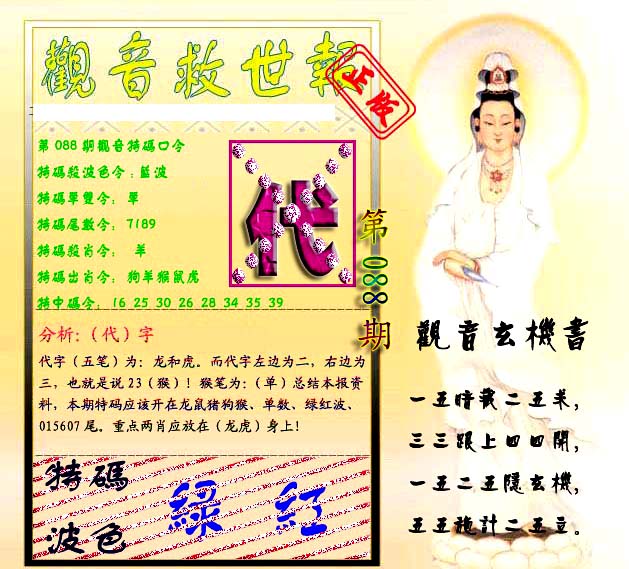 觀音救世報
正版
第 088 期觀音特碼口令
特碼殺波色令：藍波
特碼單雙令： 單
特碼尾數令： 7189
特碼殺肖令： 羊
特碼出肖令： 狗羊猴鼠虎
特中碼令： 16 25 30 26 28 34 35 39
代
第 088 期
分析:（代）字
代字（五笔）为：龙和虎。而代字左边为二，右边为
三，也就是说 23（猴）！猴笔为:（单）总结本报资
料，本期特码应该开在龙鼠猪狗猴、单数、绿红波、
015607 尾。重点两肖应放在（龙虎）身上！
特碼
波色
綠 紅
觀音玄機書
一五暗藏二五来，
三三跟上四四開，
一五二五隱玄機，
五五施計二五豆。